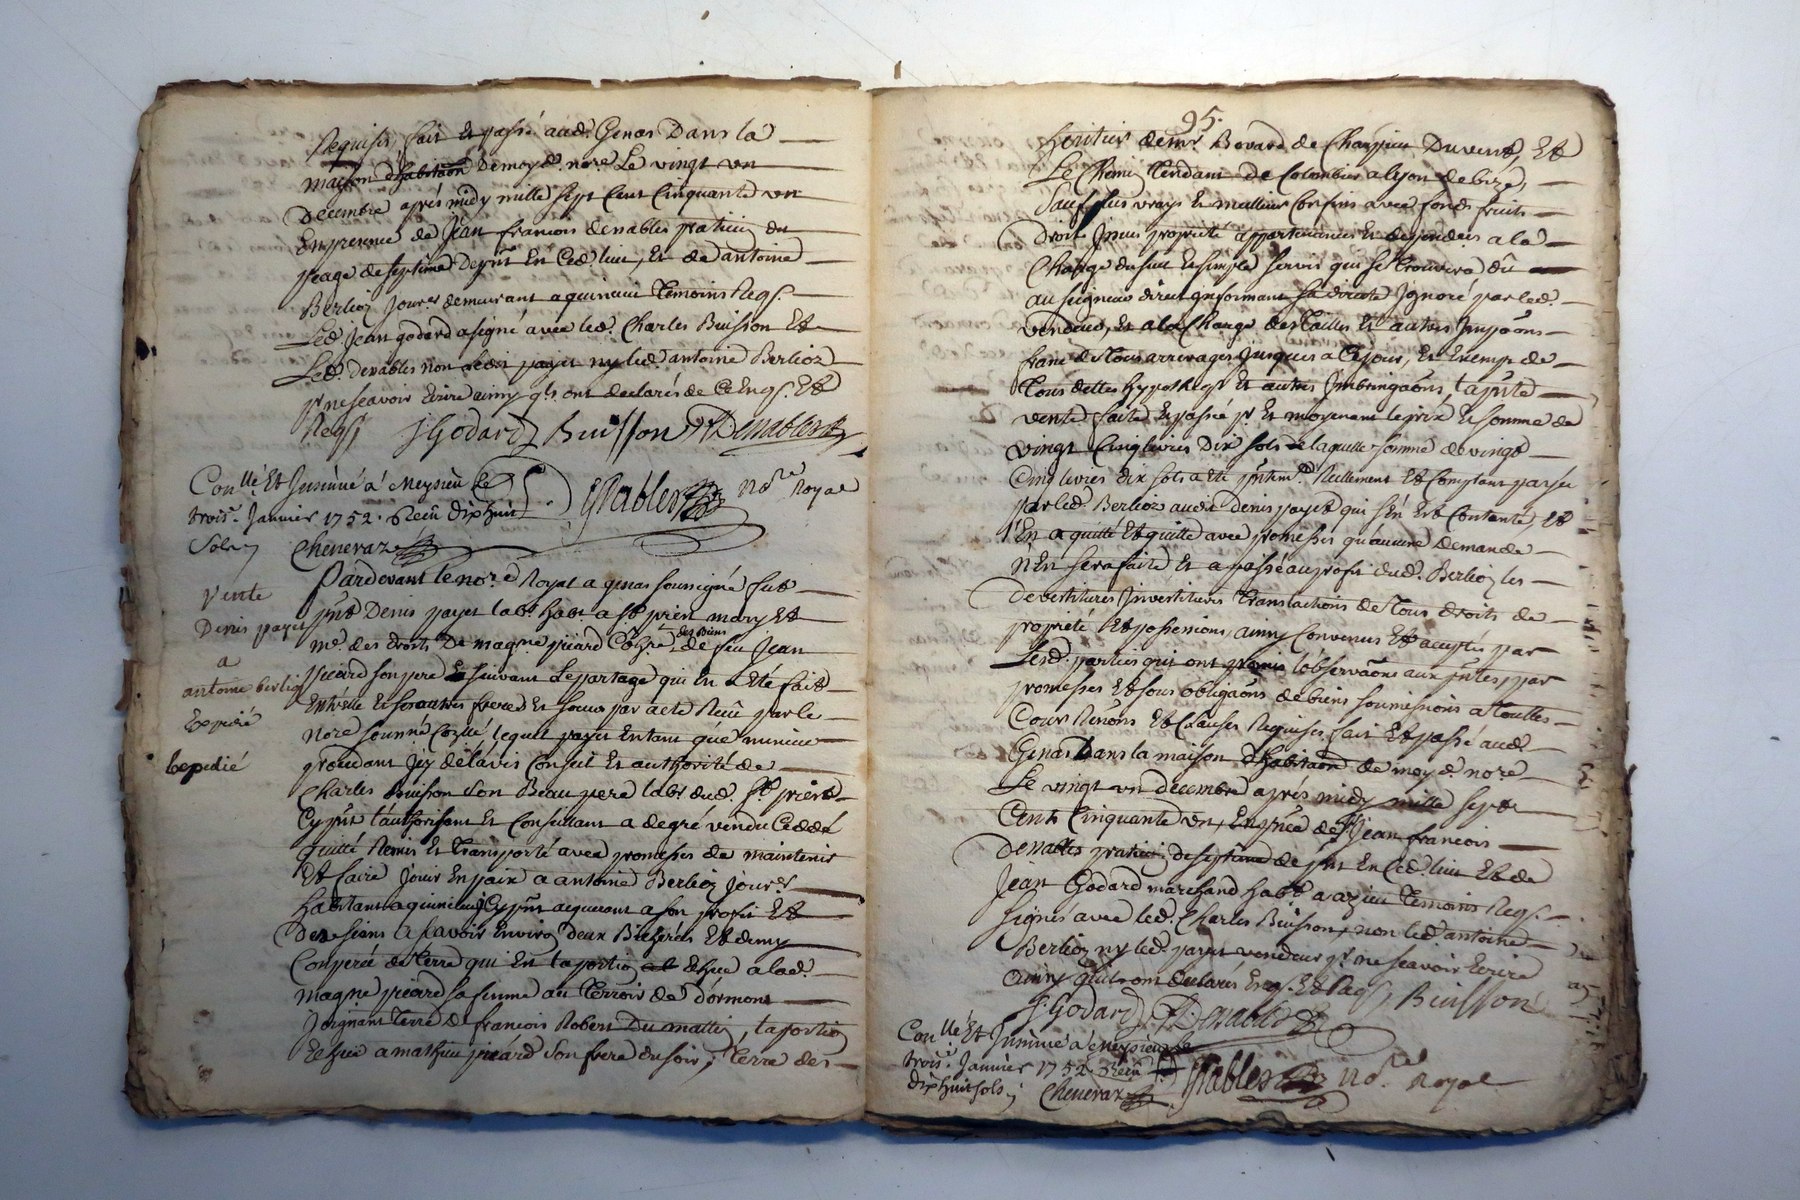 Requises, fait et passé aud. Genas Dans la
maison d'habitaon De moy d. nore. Le vingt un
Decembre après midy mille sept Cent Cinquante un
En presence de Jean francois denables praticien du
peage de septeme Depnt En Ced. lieu, et de antoine
Berlioz Jour. demeurant a Temoins Reqs.
Led. Jean godard a signé avec led. Charles Buisson Et
Led. Denables non led. payet ny led. antoine Berlioz
pr ne scavoir Ecrire ainsy qls ont declarés de ce Enqs. Et
Reqs J Godard Buisson Denables
Conllé Et Insinué á Meysieu le
trois. Janvier 1752. Receu dix huit
Sols
Chenevaz
Nore Royal
vente
Denis payet
a
antoine berlioz
Expedié
Expedié
Pardevant le nore Royal a genas soussigné fut
pnt Denis payet labr habt a St priest mary Et
me. des droits De magne picard Cohre. des Biens de feu Jean
picard son pere Suivant Le partage qui en a Eté fait
Entr'elle et ses autres freres Et soeurs par acte Receu par le
nore lequel payet En tant que mineur
de l'avis Conseil et authorité de
Charles Buisson son Beau pere labr dud. St priest
Cy pnt l'authorisant Et Conseillant a de gré vendu Ceddé
quitté Remis Et transporté avec promesses de maintenir
Et faire Jouir En paix a antoine Berlioz Jour.
habitant Cy pnt aquerant a son profit Et
Des siens a scavoir Environ Deux Bicherées Et demy
Couperée de terre qui Est la portion Echue a lad.
magne picard sa femme au Terroir de d'ormont
Joignant terre de francois Robert Du matin, la portion
Echue a mathieu picard son frere du soir; terre des
95.
heritier de mr. Bovard de Chassieu Du vent, Et
Le Chemin Tendant de Colombier a lyon de bize,
Sauf plus vrays Et meilleurs Confins avec fonds fruits
Droits propriété appartenances Et dependces a la
Charge du seul Et simple servis qui se trouvera dû
au seigneur direct Informant sa directe Ignoré par led.
vendeur, Et a la Charge des Tailles Et autres Imposons
franc de tous arrerages Jusques a Ce jour, Et Exempt de
Tous dettes hypotheqs Et autres Imbringaons, la pnte
vente faite Et passée pr Et moyenant le prix Et somme de
vingt Cinq livres Dix sols laquelle somme de vingt
Cinq livres dix sols a eté pntemt. Reellement Et Comptant payée
par led. Berlioz audt. denis payet qui s'en Est Contenté, Et
l'En a quitté Et quitte avec promesses qu'aucune demande
n'En sera faite Et a passé au profit dud. Berlioz les
Devestitures Investitures translactions de Tous droits de
propriété Et possessions, ainsy Convenus Et acceptés par
Lesd. parties qui ont promis l'observaon aux pntes, par
promesses Et sous obligaons de biens soumissions a Touttes
Cours Renons Et Clauses Requises, fait Et passé aud.
Genas Dans la maison d'habitaon de moy d. nore
Le vingt un decembre après midy mille sept
Cent Cinquante un, En pnce de Sr. Jean francois
Denables praticien de septeme de pnt En Ced. lieu Et de
Jean Godard marchand habt. a azieu Temoins Reqs.
signés avec led. Charles Buisson, non led. antoine
Berlioz ny led. payet vendeur pr ne scavoir Ecrire
ainsy qu'ils ont declarés Enqs. Et Reqs. Buisson
J. Godard Denables
Conllé Et Insinué á Meysieu le
trois. Janvier 1752. Receu
Dix huit sols
Chenevaz
Nore Royal